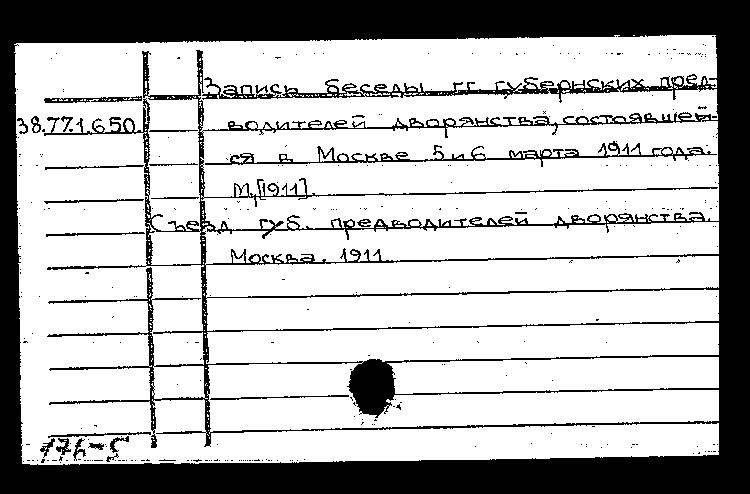 Запись беседы гг. губернских пред-
38.77.1.650. водителей дворянства, состоявшей-
ся в Москве 5 и 6 марта 1911 года.
М, [1911].
Съезд губ. предводителей дворянства.
Москва. 1911.
176-5